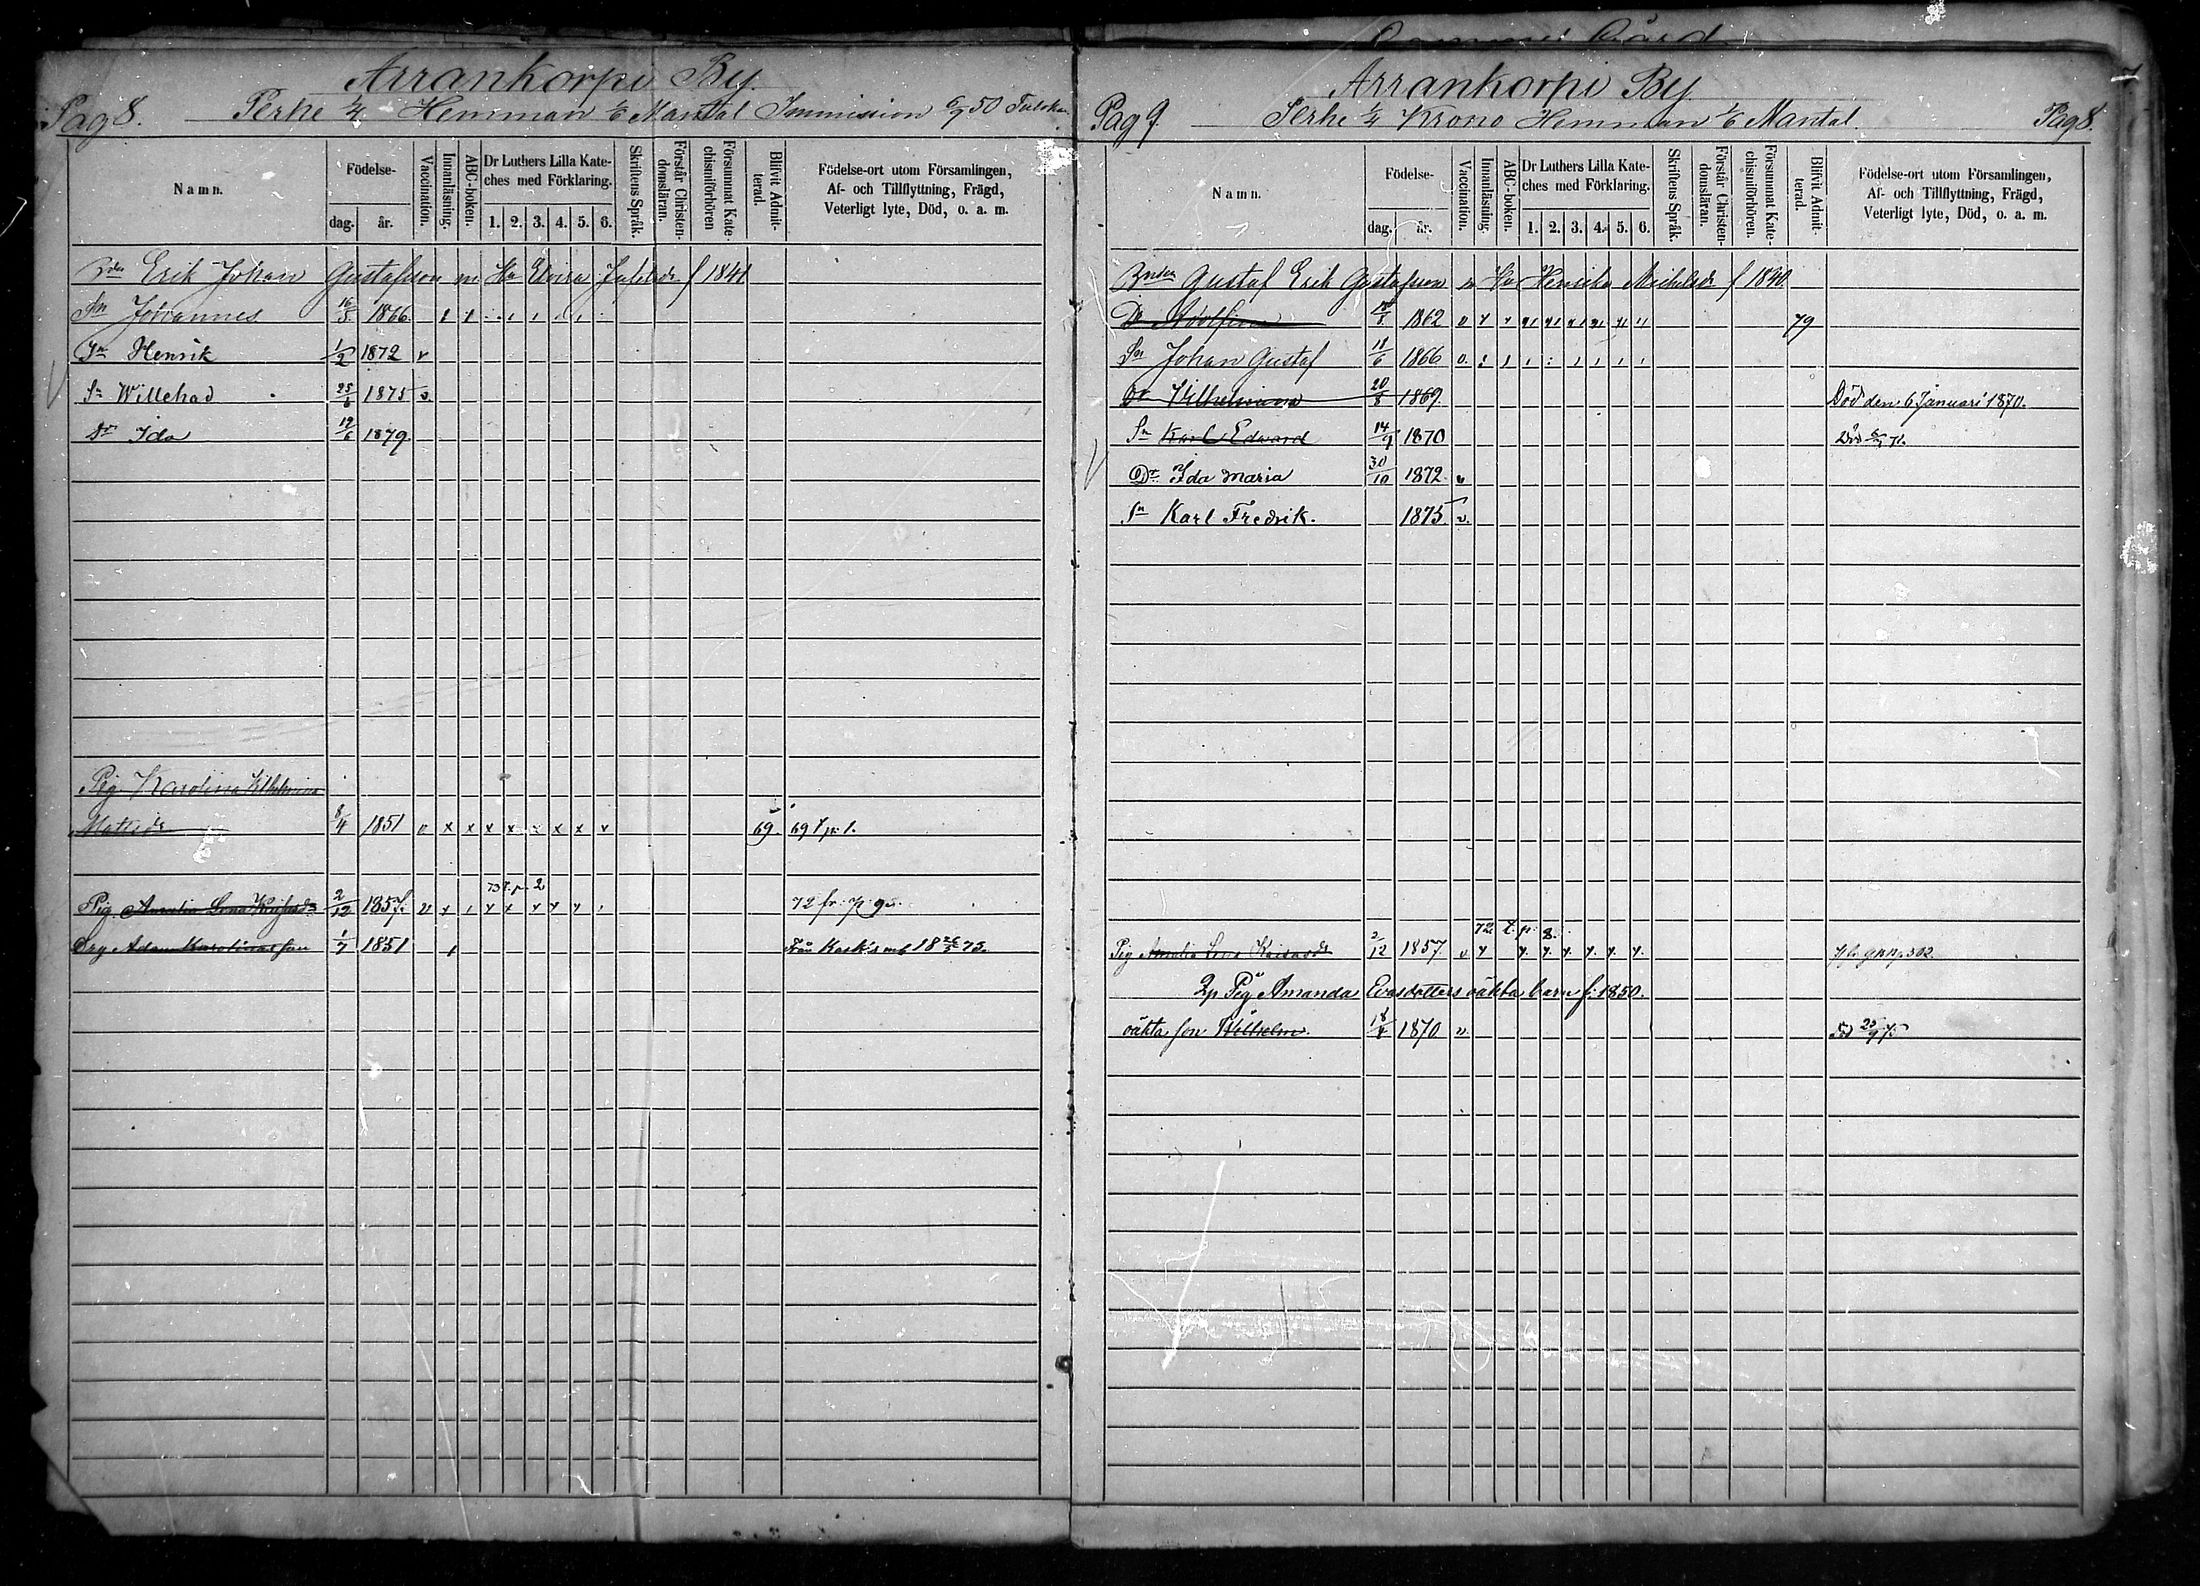 Arrankorpi By.
Pag 8. Perhe 1/4 Hemman 1/6 Mantal Immission 50
Namn. Födelse- dag. år. Vaccination. Innanläsning. ABC-boken. Dr Luthers Lilla Kateches med Förklaring. 1. 2. 3. 4. 5. 6. Skriftens Språk. Förstår Christendomsläran. Försummat Katechismiförhören Blifvit Admitterad. Födelse-ort utom Församlingen, Af- och Tillflyttning, Frägd, Veterligt lyte, Död, o. a. m.
Erik Johan Gustafsson m Hu f 1841
Sn Johannes 16/5 1866
Sn Henrik 1/2 1872 v
Sn Willehad 25/6 1875 v.
Dr Ida 12/6 1879.
Pig. Karolina Wilhelmina
8/4 1851 v x x x x x x x x 69. 69 t p. 1.
73 t. p. 2
Pig. Amalia Lena 2/12 1857. v 72 fr. p 95.
Drg Adam Karolinas son 1/7 1851 Från
Arrankorpi By
Pag 9. Perhe 1/4 Krono Hemman 1/6 Mantal. Pag 8.
Namn. Födelse- dag. år. Vaccination. Innanläsning. ABC-boken. Dr Luthers Lilla Kateches med Förklaring. 1. 2. 3. 4. 5. 6. Skriftens Språk. Förstår Christendomsläran. Försummat Katechismiförhören. Blifvit Admitterad. Födelse-ort utom Församlingen, Af- och Tillflyttning, Frägd, Veterligt lyte, Död, o. a. m.
Gustaf Erik Gustafsson m Hu Henrika Michelsdr f 1840
Dr Adolfina 1862 79
Sn Johan Gustaf 18/6 1866
Dr Wilhelmina 20/8 1869 Död den 6 Januari 1870.
Sn Karl Edward 14/9 1870 Död 71.
Dr Ida Maria 30/10 1872. v
Sn Karl Fredrik. 1875 v.
72. t. p. 8.
Pig Amalia Lena 2/12 1857. v
Pig Amanda Evasdotters oäkta barn f. 1850.
oäkta son Wilhelm. 18/4 1870. v 25/9 75